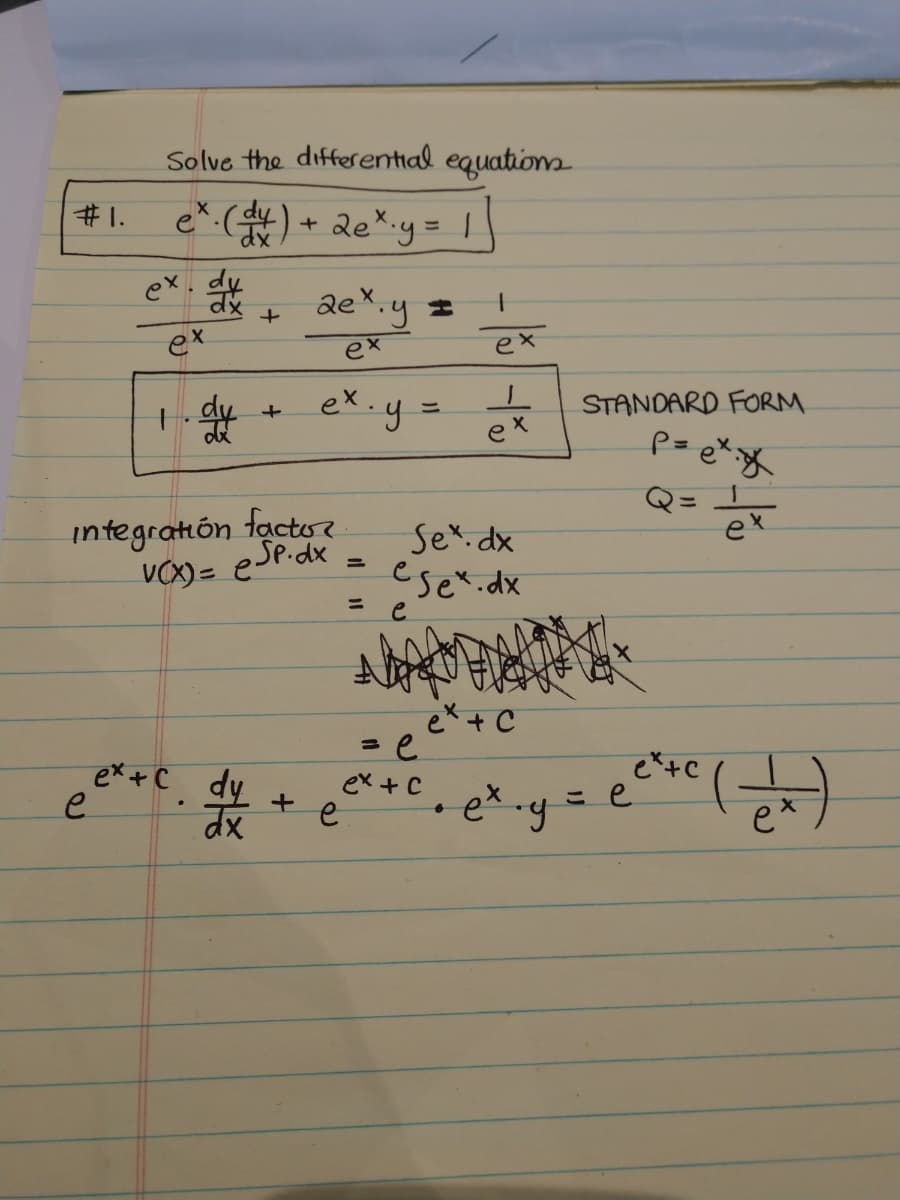 Solve the differential equations
#1. eˣ·(dy/dx) + 2eˣ·y = 1
eˣ·dy/dx / eˣ + 2eˣ·y / eˣ = 1 / eˣ
1·dy/dx + eˣ·y = 1/eˣ STANDARD FORM
P = eˣ·y
Q = 1/eˣ
integratión factor
V(X) = e^∫P·dx = e^∫eˣ·dx
= e^∫eˣ·dx
= e^(eˣ + C)
e^(eˣ + C) · dy/dx + e^(eˣ + C) · eˣ·y = e^(eˣ+C) (1/eˣ)